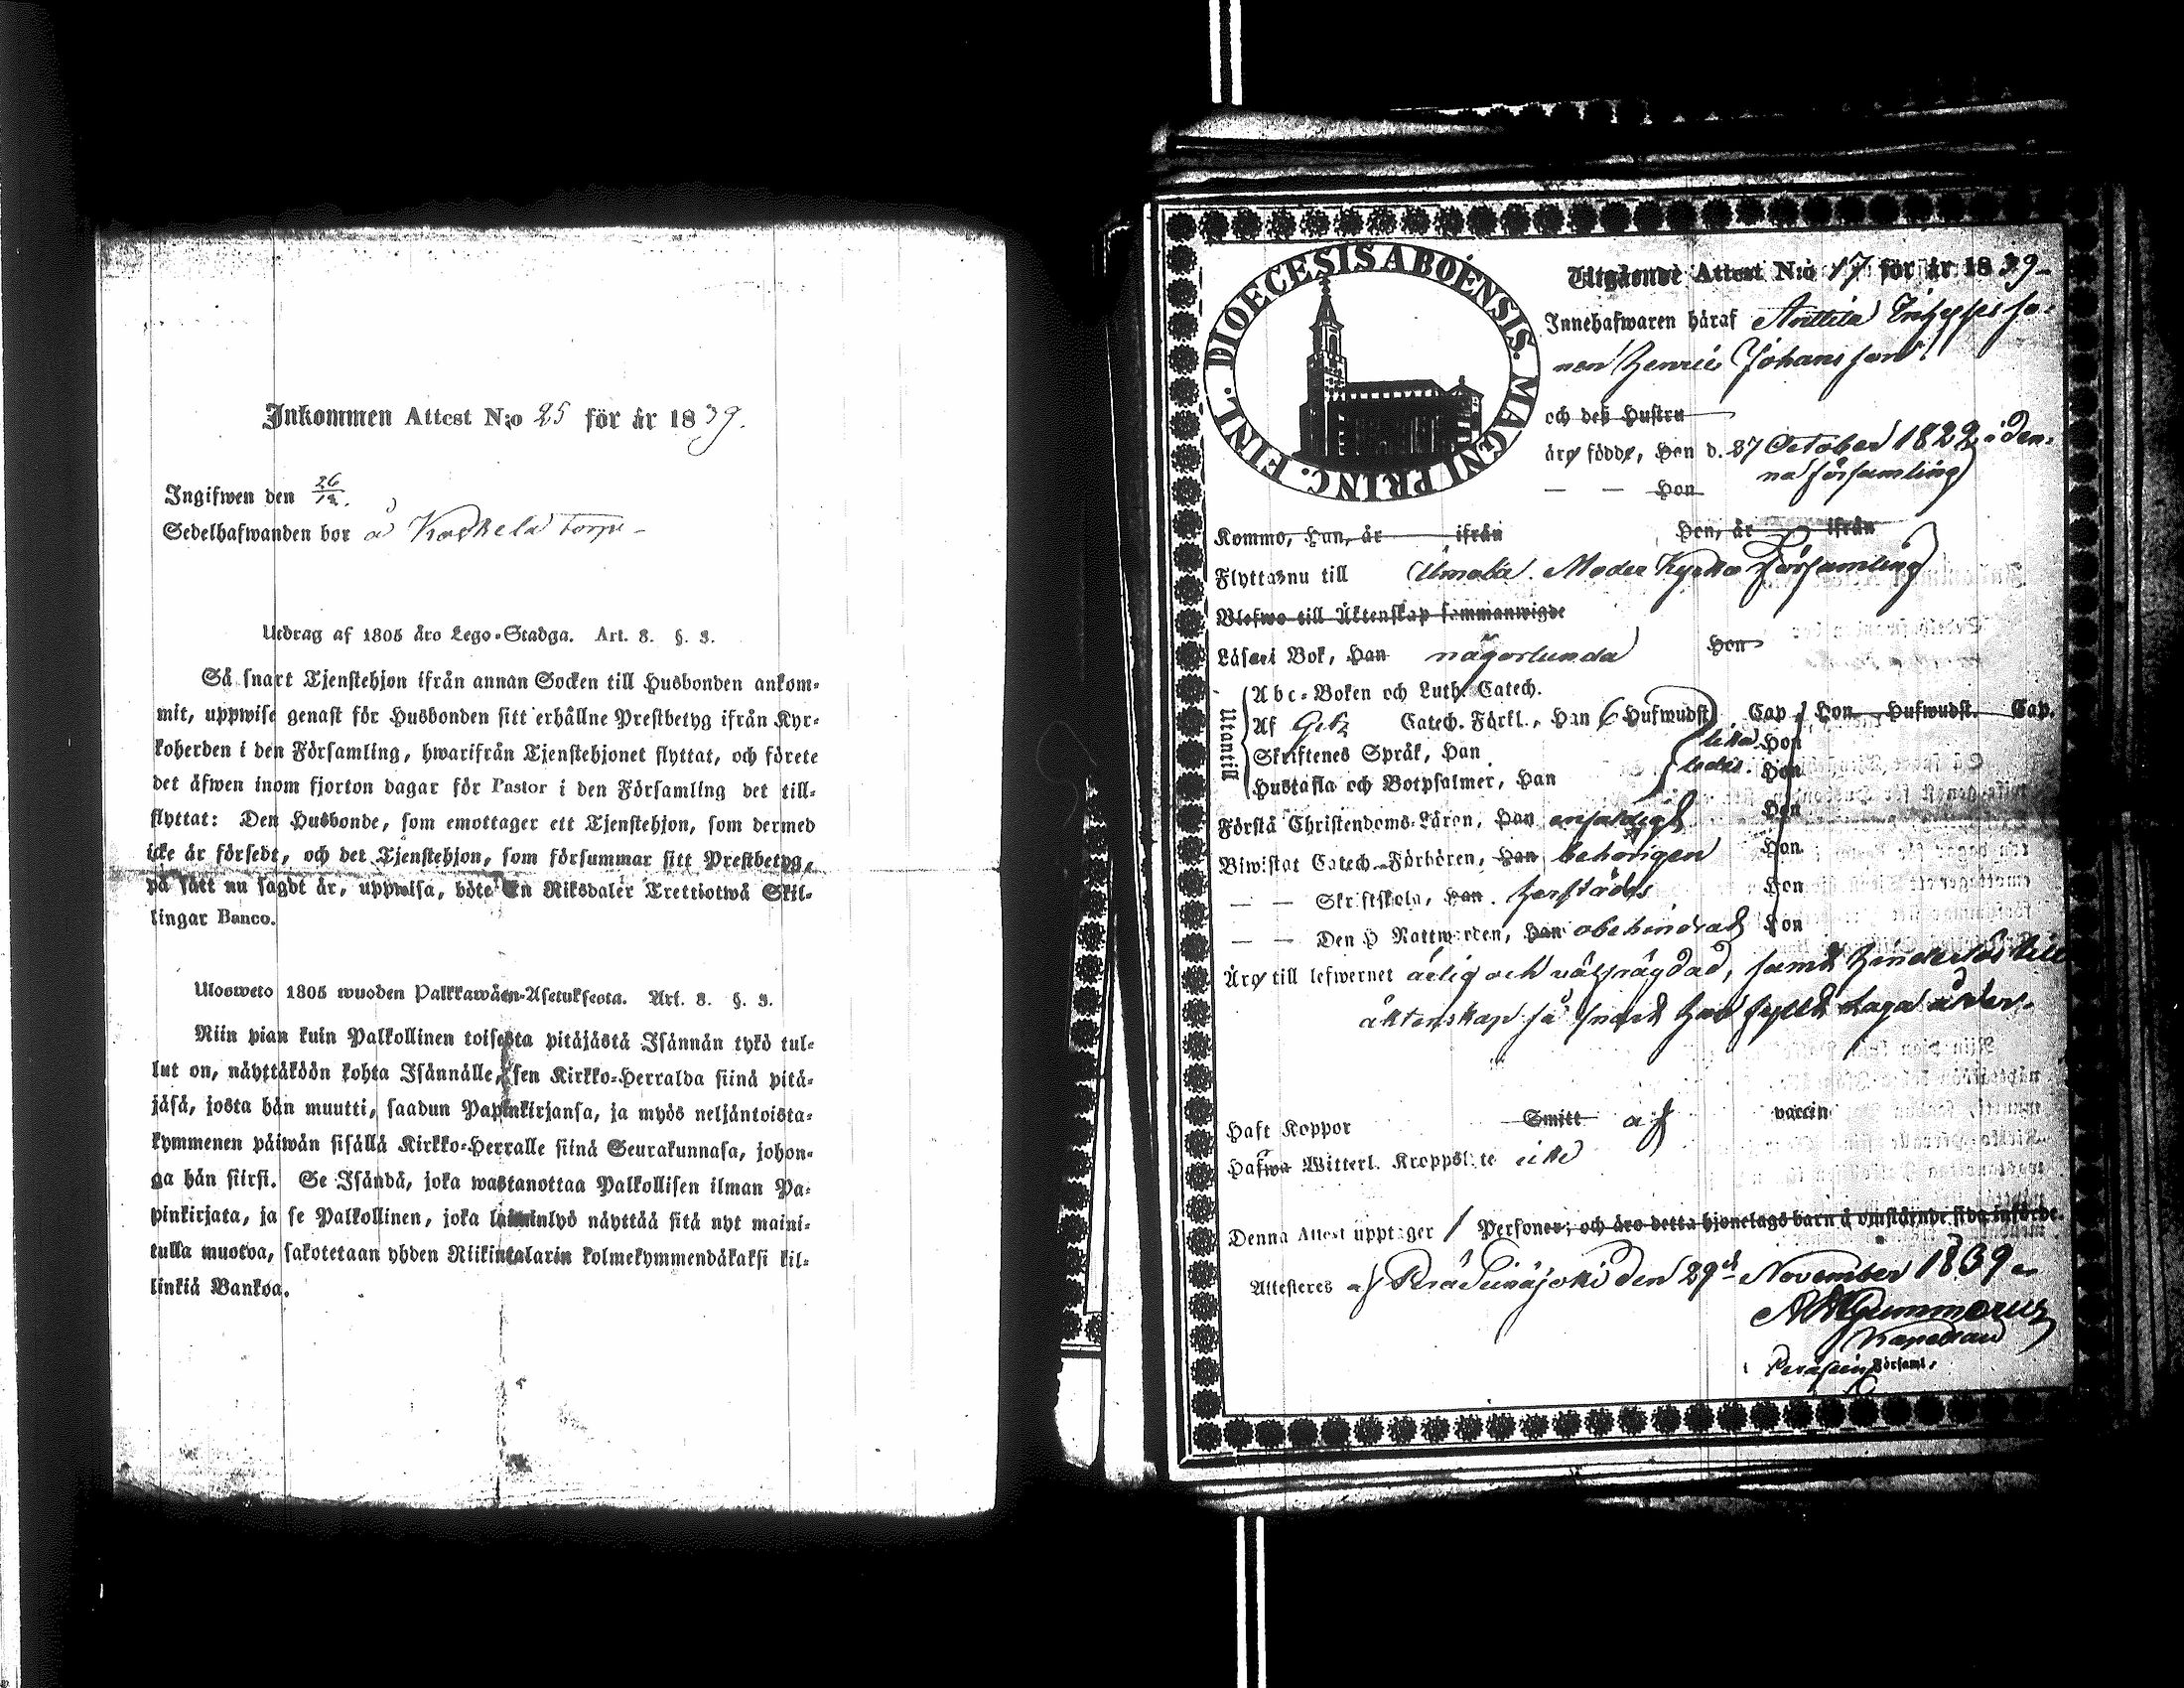 Inkommen Attest N:o 25 för år 1839.
Ingifwen den 26/12.
Sedelhafwanden bor å Koskela torp
Utdrag af 1805 års Lego-Stadga. Art. 3. §. 3.
Så snart Tjenstehjon ifrån annan Socken till Husbonden ankom-
mit, uppwise genast för Husbonden sitt erhållne Prestbetyg ifrån Kyr-
koherden i den Församling, hwarifrån Tjenstehjonet flyttat, och förete
det äfwen inom fjorton dagar för Pastor i den Församling det till-
flyttat: Den Husbonde, som emottager ett Tjenstehjon, som dermed
icke är försedt, och det Tjenstehjon, som försummar sitt Prestbetyg,
på sätt nu sagdt är, uppwisa, böte En Riksdaler Trettiotwå Skil-
lingar Banco.
Ulosweto 1805 wuoden Palkkawäen-Asetuksesta. Art. 3. §. 3.
Niin pian kuin Palkollinen toisesta pitäjästä Isännän tykö tul-
lut on, näyttäköön kohta Isännälle, sen Kirkko-Herralda siinä pitä-
jäsä, josta hän muutti, saadun Papinkirjansa, ja myös neljäntoista-
kymmenen päiwän sisällä Kirkko-Herralle siinä Seurakunnasa, johon-
ga hän siirsi. Se Isändä, joka wastanottaa Palkollisen ilman Pa-
pinkirjata, ja se Palkollinen, joka laiminlyö näyttää sitä nyt maini-
tulla muotoa, sakotetaan yhden Riikintalarin kolmekymmendäkaksi kil-
linkiä Bankoa.
DIOECESIS ABOËNSIS. MAGNI PRINC. FINL.
Utgående Attest N:o 17 för år 1839
Innehafwaren häraf Anttila
nen Henric Johansson
och deß Hustru
äro födde, Han d. 27 October 1822 i den-
— — Hon na församling
Kommo, Han, år ifrån Hon, år ifrån
Flyttar nu till Ilmola Moder Kyrko Församling
Blefwo till Äktenskap sammanwigde
Läser i Bok, Han någorlunda Hon
Utantill
Abc-Boken och Luth. Catech.
Af Getz Catech. Förkl., Han 6 Hufwudst. Cap. Hon Hufwudst. Cap.
Skriftenes Språk, Han lika Hon
Hustafla och Botpsalmer, Han ledes. Hon
Förstå Christendoms-Läran, Han enfaldigt Hon
Biwistat Catech.-Förhören, Han behörigen Hon
— — Skriftskola, Han härstädes Hon
— — Den H. Nattwarden, Han obehindrat Hon
Äro till lefwernet ärlig och välfrägdad, samt hinderlös till
äktenskap så snart han fyllt laga ålder.
Haft Koppor Smitt af vaccin
Hafwa Witterl. Kroppslyte icke
Denna Attest upptager 1 Personer; och äro detta hjonelags barn å omstående sida införde.
Attesteres af Perä Seinäjoki den 29de November 1839
Gummerus
Kapellan
i Perä Sein Församl.